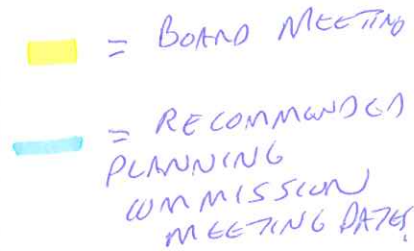 = BOARD MEETING
= RECOMMENDED
PLANNING
COMMISSION
MEETING DATES